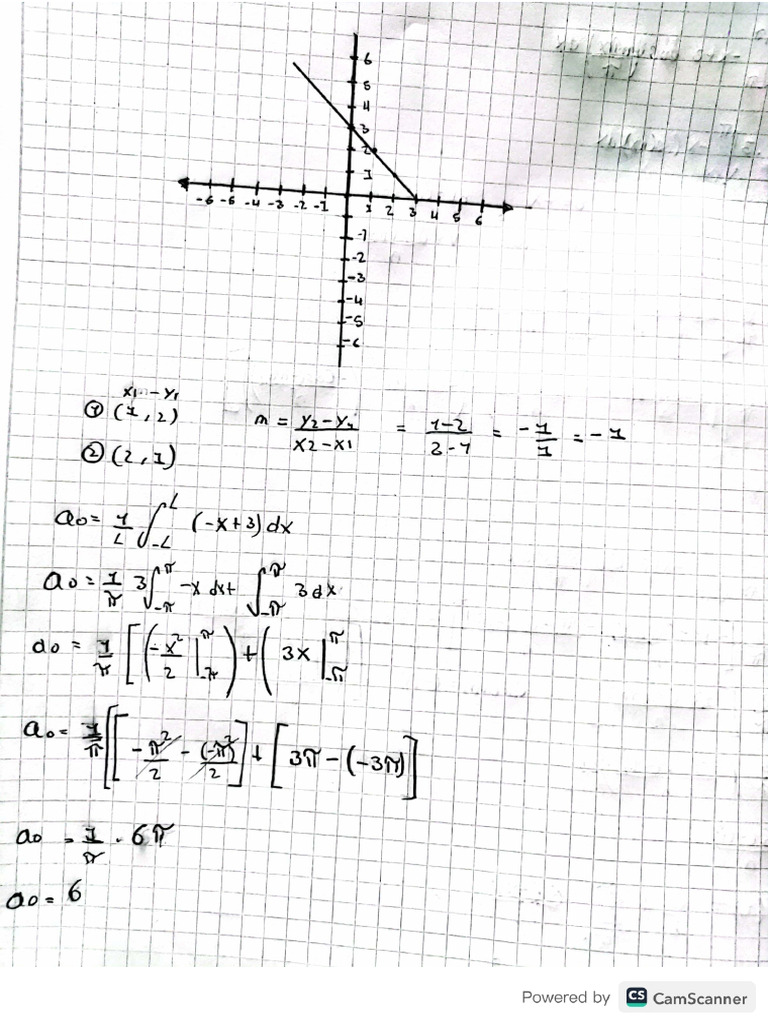 6
5
4
3
2
1
-6 -5 -4 -3 -2 -1 1 2 3 4 5 6
-1
-2
-3
-4
-5
-6
x1 - y1
① (1, 2) m = y2 - y1 / x2 - x1 = 1-2 / 2-1 = -1/1 = -1
② (2, 1)
a0 = 1/L ∫_-L^L (-x+3) dx
a0 = 1/π 3∫_-π^π -x dx + ∫_-π^π 3 dx
a0 = 1/π [(-x²/2 |_-π^π) + (3x |_-π^π
a0 = 1/π [[-π²/2 - (-π)²/2] + [3π - (-3π)]
a0 = 1/π · 6π
a0 = 6
Powered by CS CamScanner